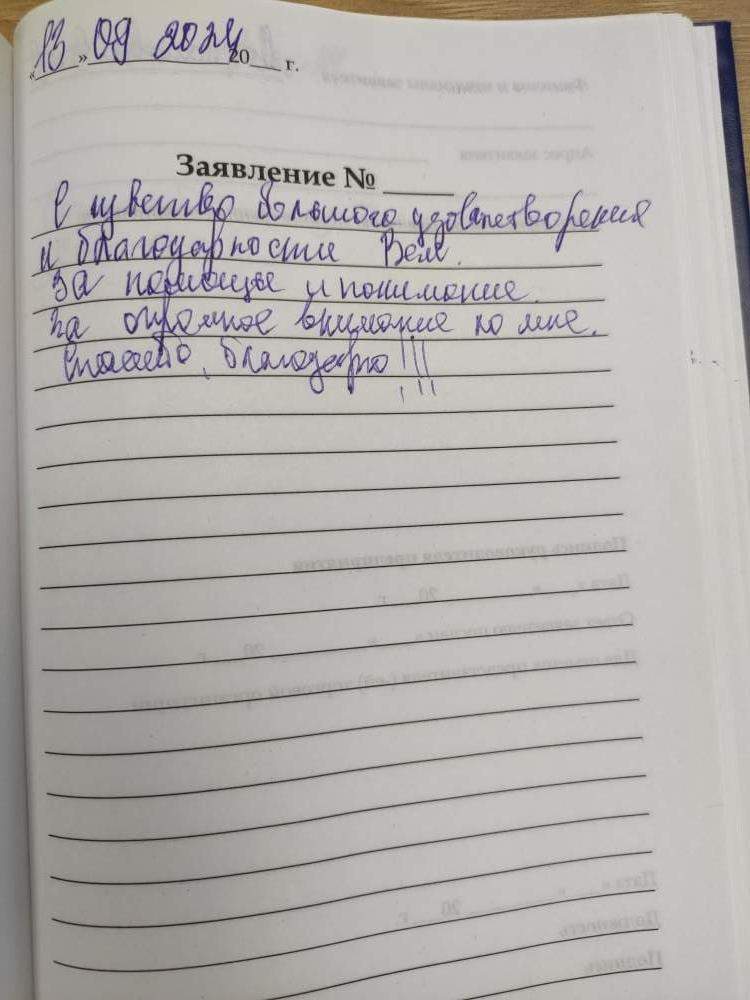 «13» 09 2024 20___ г.
Заявление № _____
С чувство большого удовлетворения
и благодарности Вам.
За помощье и понимание.
За огромное внимание ко мне.
Спасибо, благодарю!!!